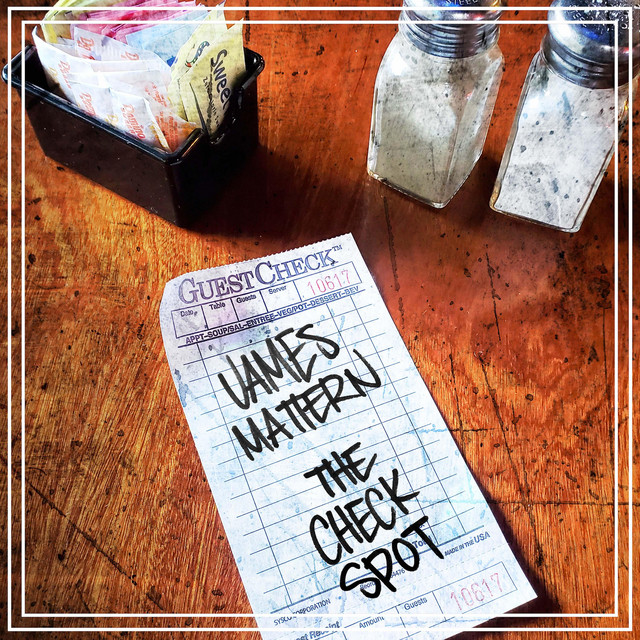 Sweet
GUEST CHECK™
Date Table Guests Server 10617
APPT-SOUP/SAL-ENTREE-VEG/POT-DESSERT-BEV
JAMES
MATTERN
THE
CHECK
SPOT
MADE IN THE USA
SYSCO CORPORATION
Guest Receipt Amount Guests 10617